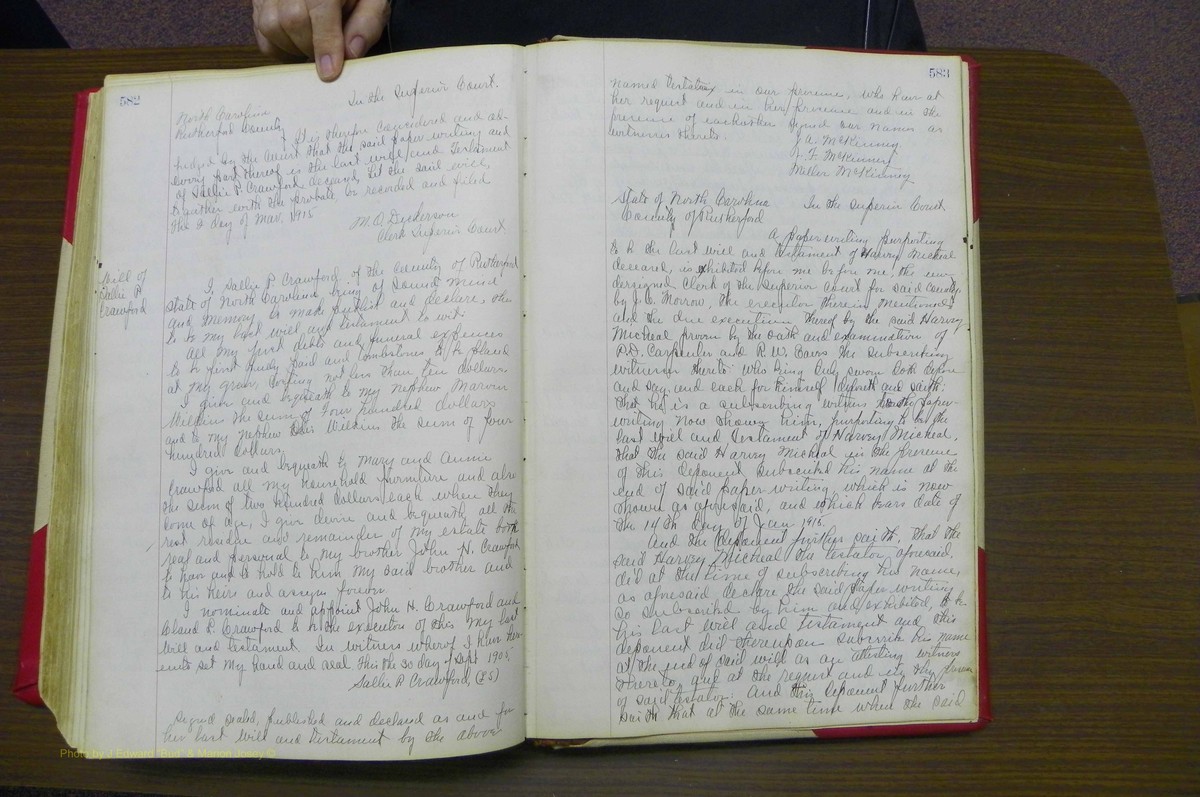 582
In the Superior Court.
North Carolina
Rutherford County
It is therefore considered and ad-
judged by the court that the said paper writing and
every part thereof is the last will and testament
of Sallie P. Crawford deceased, let the said will,
together with the probate be recorded and filed
The 2 day of Mar, 1915
M. O. Dickerson
Clerk Superior Court
Will of
Sallie P.
Crawford
I Sallie P Crawford, of the County of Rutherford
State of North Carolina, being of sound mind
and memory do make publish and declare, this
to be my last will and testament to wit
All my just debts and funeral expences
to be first Paid and tombstone to be placed
at my grave, costing not less than ten dollars.
I give and bequeath to my Nephew Marvin
Wilkins the sum of Four hundred dollars
and to my nephew Wilkins the sum of four
hundred dollars.
I give and bequeath to Mary and Annie
Crawford all my household furniture and also
the sum of two hundred dollars each when they
come of age, I give devise and bequeath, all the
rest residue and remainder of my estate both
real and personal to my brother John H. Crawford
to have and to hold to him my said brother and
to his heirs and assigns forever.
I nominate and appoint John H. Crawford and
Claud P. Crawford to be the executors of this my last
will and testament. In witness whereof I have here-
unto set my hand and seal this the 30 day of Sept 1905
Sallie P Crawford, (LS)
Signed sealed, published and declared as and for
her last will and testament by the above
Photo by J Edward "Bud" & Marion Josey ©
583
named testatrix in our presence, who have at
her request and in her presence and in the
presence of each other signed our names as
witnesses thereto.
J. A. McKinney
J. F. McKinney
Miller McKinney
State of North Carolina In the Superior Court
County of Rutherford
A paper writing purporting
to be the last will and testament of Harvey Micheal
deceased, is exhibited before me before me, the un-
dersigned Clerk of the Superior Court for said County
by J. C. Morrow, the executor therein mentioned
and the due execution thereof by the said Harvey
Micheal proven by the oath and examination of
P.D. Carpenter and R. W. the subscribing
witnesses thereto: who being duly sworn doth depose
and say, and each for himself deposeth and saith:
That he is a subscribing witness to the paper-
writing now shown him, purporting to be the
last will and testament of Harvey Micheal,
that the said Harvey Micheal in the presence
of this deponent subscribed his name at the
end of said paper writing which is now
shown as aforesaid, and which bears date of
the 14th day of Jan 1915.
And the deponent further saith, that the
said Harvey Micheal the testator, aforesaid,
did at the time of subscribing his name,
as aforesaid, declare the said paper writing
so subscribed by him and exhibited, to be
his last will and testament and this
deponent did thereupon subscribe his name
at the end of said will as an attesting witness
thereto, and at the request and in the presence
of said testator: And this deponent further
saith that at the same time when the said